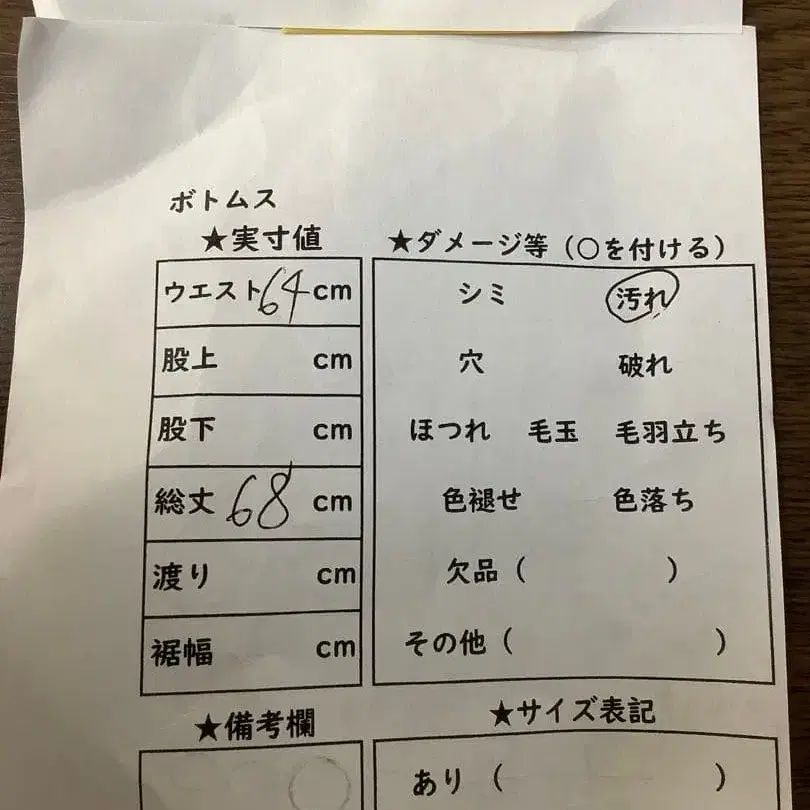 ボトムス
★実寸値
ウエスト64cm
股上 cm
股下 cm
総丈 68 cm
渡り cm
裾幅 cm
★ダメージ等（○を付ける）
シミ 汚れ
穴 破れ
ほつれ 毛玉 毛羽立ち
色褪せ 色落ち
欠品（ ）
その他（ ）
★備考欄
★サイズ表記
あり（ ）